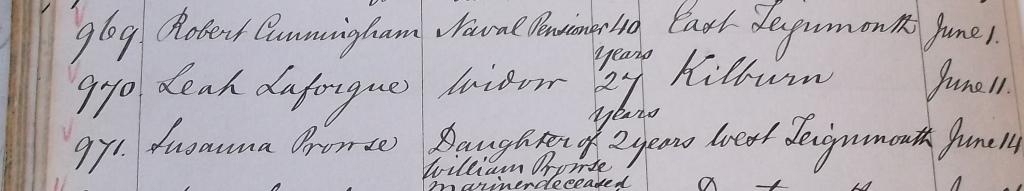 969. Robert Cunningham Naval Pensioner 40 years East Teignmouth June 1.
970. Leah Laforgue Widow 27 years Kilburn June 11.
971. Susanna Prowse Daughter of 2 years West Teignmouth June 14
William Prowse
mariner deceased